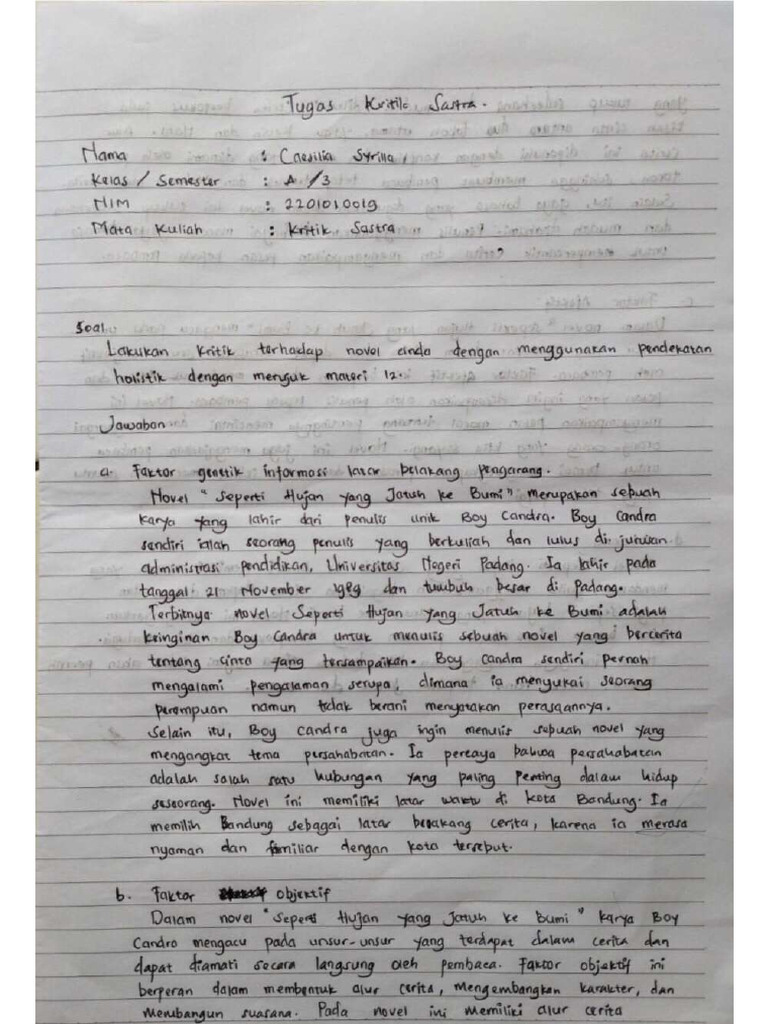 Tugas Kritik Sastra.
Nama : Caesilia Syrilla
Kelas / Semester : A /3
NIM : 2201010019
Mata Kuliah : Kritik Sastra
Soal
Lakukan kritik terhadap novel anda dengan menggunakan pendekatan
holistik dengan merujuk materi 12.
Jawaban
a. Faktor genetik informasi latar belakang pengarang.
Novel "Seperti Hujan yang Jatuh ke Bumi" merupakan sebuah
karya yang lahir dari penulis unik Boy Candra. Boy Candra
sendiri ialah seorang penulis yang berkuliah dan lulus di jurusan
administrasi pendidikan, Universitas Negeri Padang. Ia lahir pada
tanggal 21 November 1989 dan tumbuh besar di Padang.
Terbitnya novel Seperti Hujan yang Jatuh ke Bumi adalah
keinginan Boy Candra untuk menulis sebuah novel yang bercerita
tentang cinta yang tersampaikan. Boy Candra sendiri pernah
mengalami pengalaman serupa, dimana ia menyukai seorang
perempuan namun tidak berani menyatakan perasaannya.
Selain itu, Boy Candra juga ingin menulis sebuah novel yang
mengangkat tema persahabatan. Ia percaya bahwa persahabatan
adalah salah satu hubungan yang paling penting dalam hidup
seseorang. Novel ini memiliki latar waktu di kota Bandung. Ia
memilih Bandung sebagai latar belakang cerita, karena ia merasa
nyaman dan familiar dengan kota tersebut.
b. Faktor objektif
Dalam novel "Seperti Hujan yang Jatuh ke Bumi" karya Boy
Candra mengacu pada unsur-unsur yang terdapat dalam cerita dan
dapat diamati secara langsung oleh pembaca. Faktor objektif ini
berperan dalam membentuk alur cerita, mengembangkan karakter, dan
membangun suasana. Pada novel ini memiliki alur cerita